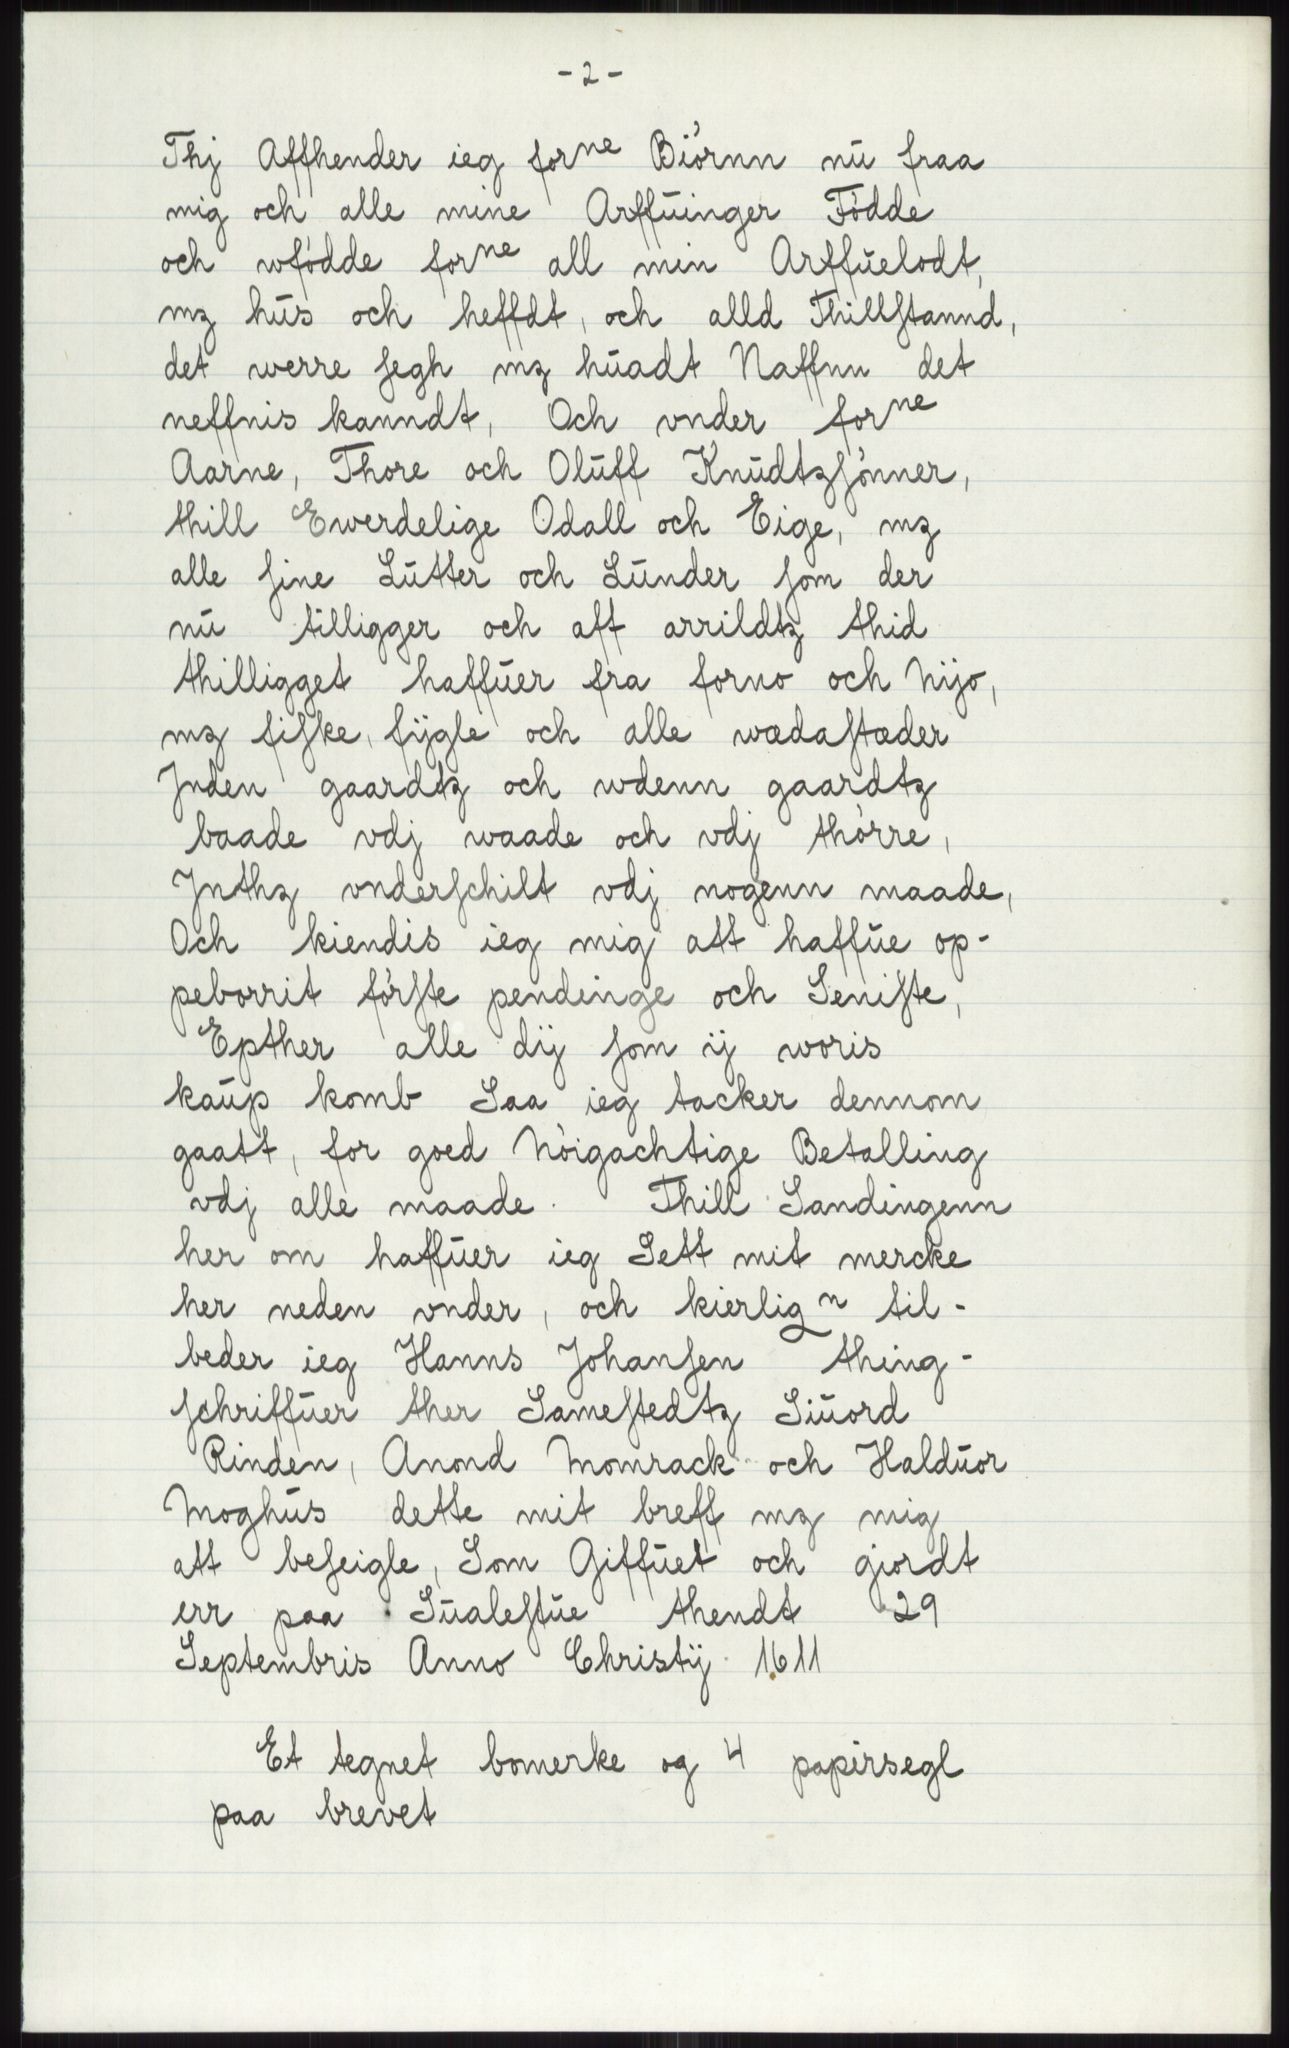 - 2 -
Thj Affhender ieg forne Biórnn nū fraa
mig och alle mine Arffūinger Fódde
och wfódde forne all min Arffūelodt,
mz hūs och heffdt, och alld Thillstannd,
det werre segh mz hūadt Naffnn det
neffnis kanndt, Och vnder forne
Aarne, Thore och Olūff Knūdtzsónner,
thill Ewerdelige Odall och Eige, mz
alle sine Lūtter och Lūnder som der
nū tilligger och aff arrildtz thid
thilligget haffūer fra forno och Nijo,
mz fiske, fijgle och alle wædastæder
Jnden gaardtz och wdenn gaardtz
baade vdj waade och vdj thórre,
Jnthz vnderschilt vdj nogenn maade,
Och kiendis ieg mig att haffūe op-
peborrit fórste pendinge och Seniste,
Epther alle dij som ij woris
kaūp komb Saa ieg tacker dennom
gaatt, for goed Nóigachtige Betalling
vdj alle maade. Thill Sandingenn
her om haffūer ieg Sett mit mercke
her neden vnder, och kierlign til-
beder ieg Hanns Johansen thing-
schriffūer ther Samestedtz Siūord
Rinden, Anond Momrack och Haldūor
Moghūs dette mit breff mz mig
att beseigle, Som Giffūet och giordt
err paa Sūalestūe thendt 29
Septembris Anno Christij 1611
Et tegnet bomerke og 4 papirsegl
paa brevet